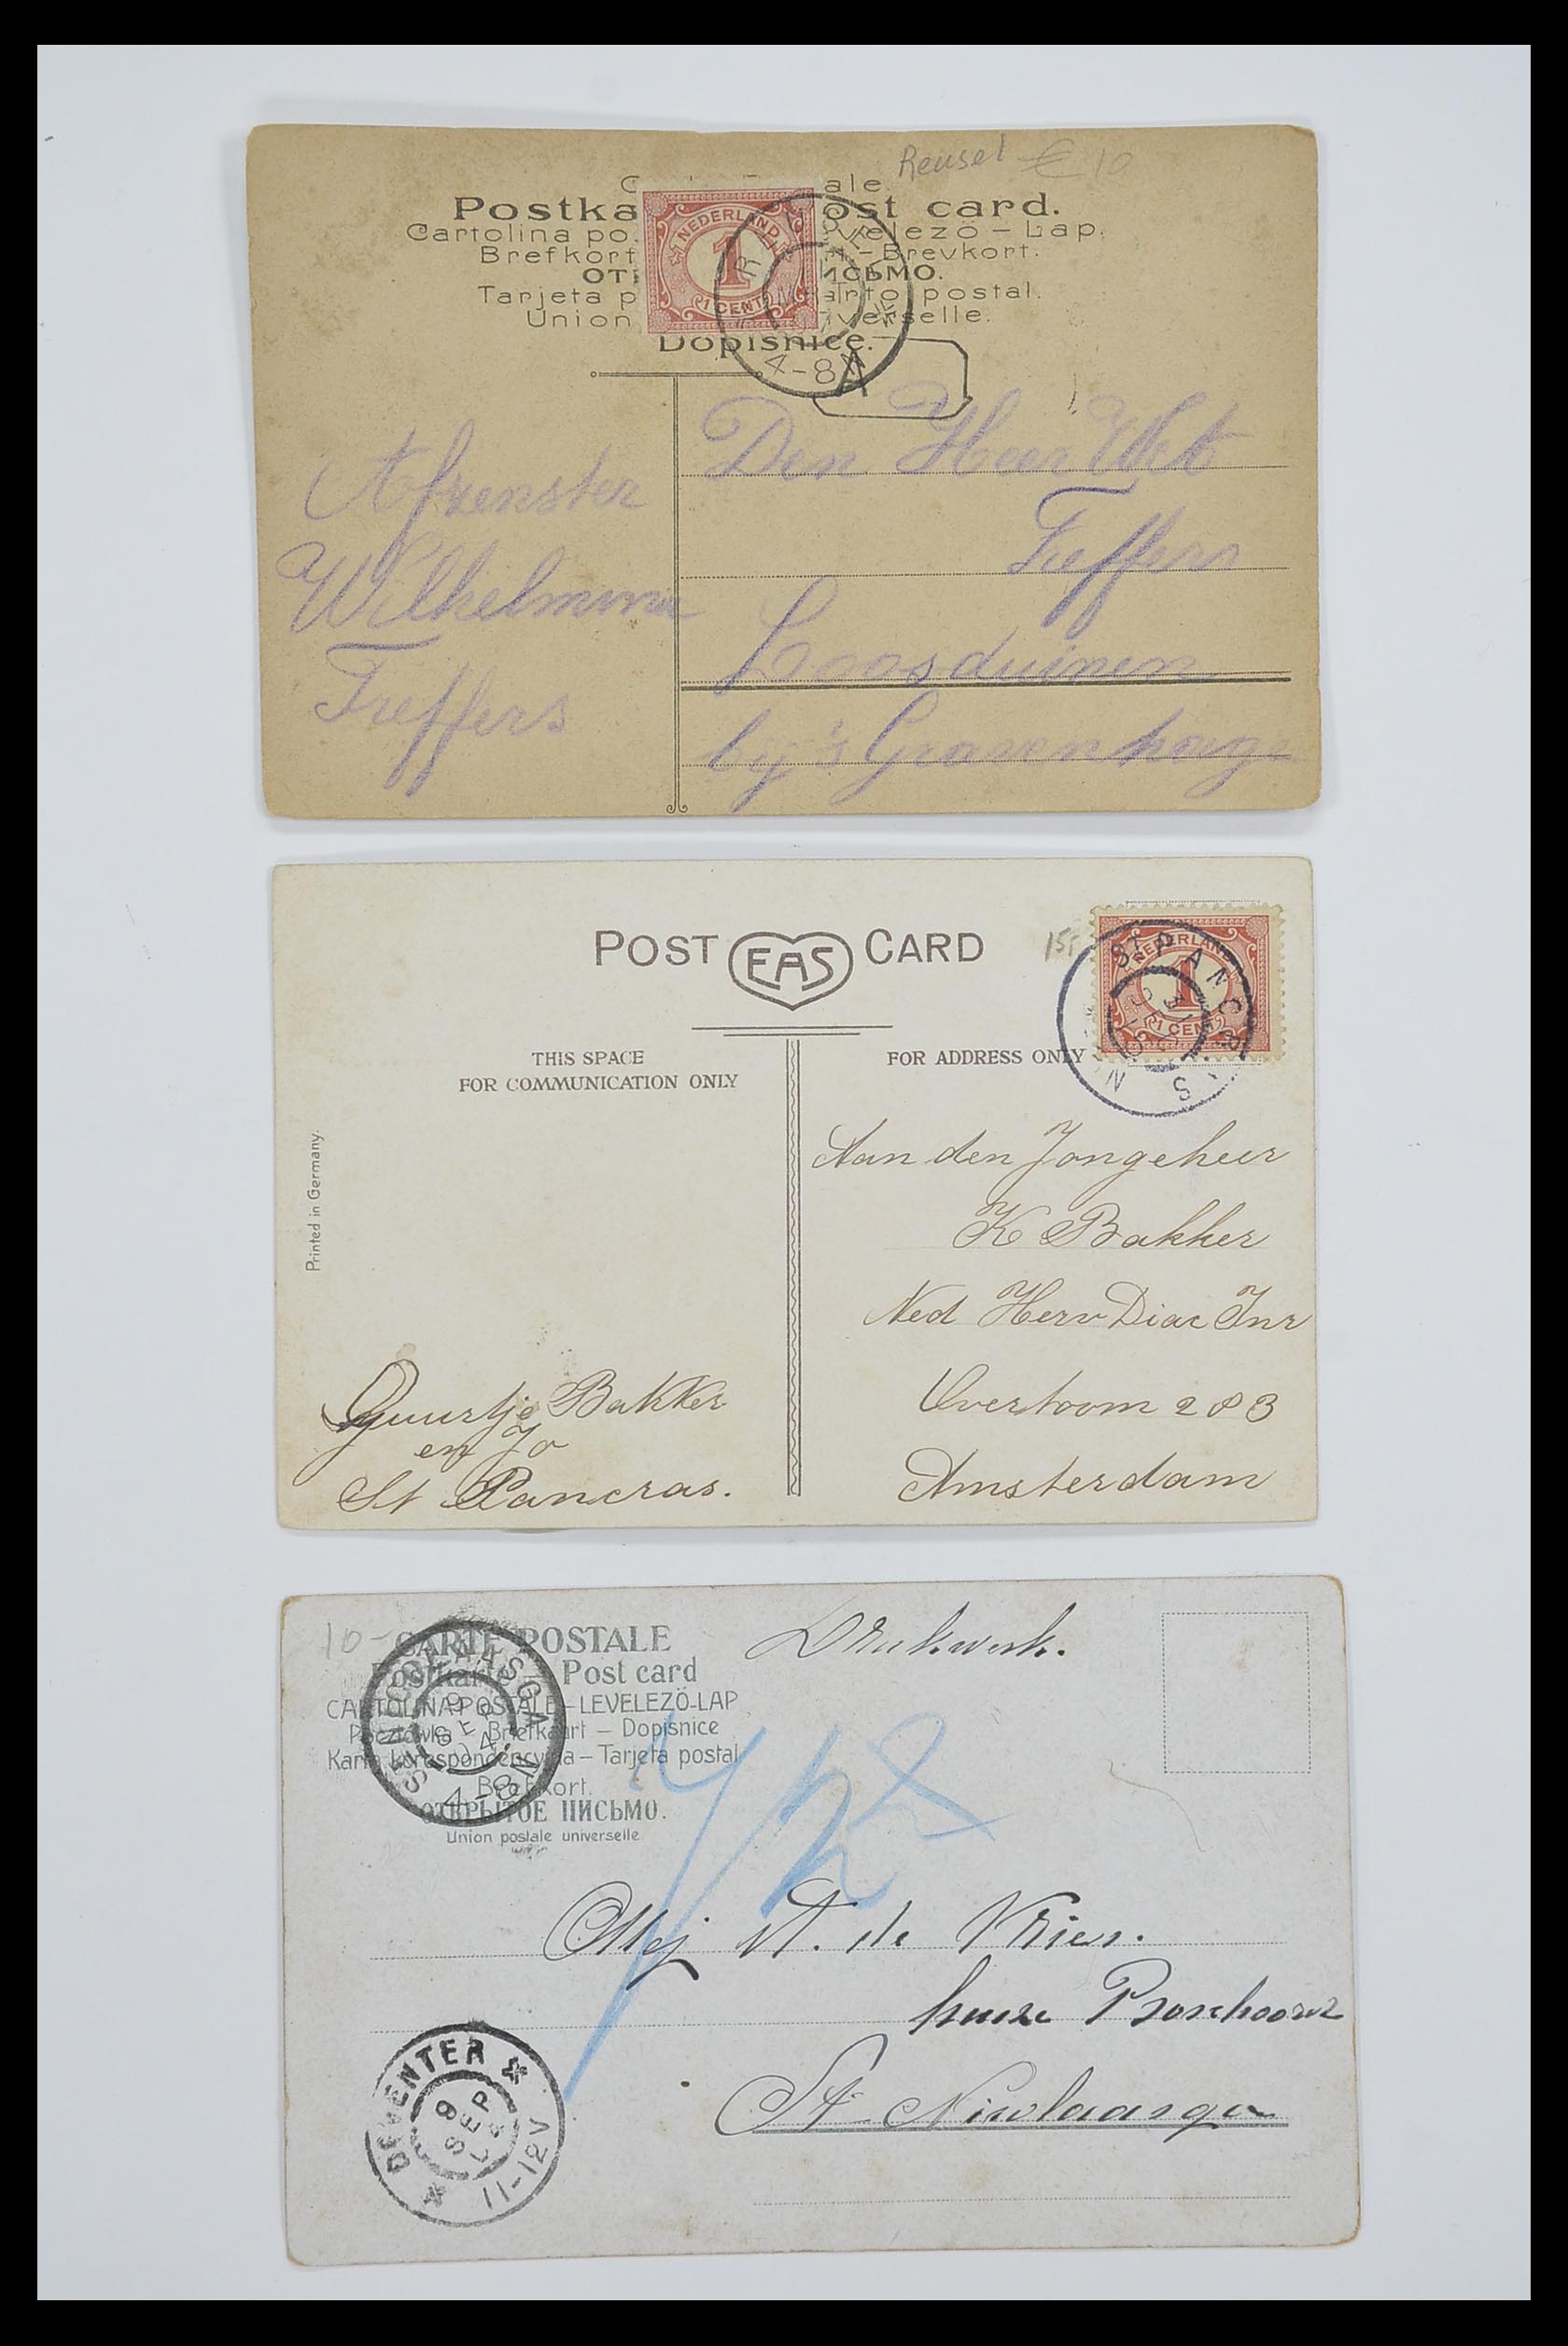 Reusel € 10
ale.
Postka ost card.
Cartolina po velezö – Lap.
Brefkort – Brevkort.
ОТ ИСЬМО.
Tarjeta p arto postal.
Union verselle.
Dopisnice.
NEDERLAND
1
1 CENT
4-8
A
Den Heer
Treffers
Loosduinen
bij 's Gravenhage
Afzenster
Wilhelmina
Treffers
POST EAS CARD
NEDERLAND
1
1 CENT
ST PANCRAS
THIS SPACE
FOR COMMUNICATION ONLY
FOR ADDRESS ONLY
Printed in Germany.
Aan den Jongeheer
K Bakker
Ned Herv Diac Inr
Overtoom 283
Amsterdam
Guurtje Bakker
en Jo
St Pancras.
10-
CARTE POSTALE
Postkarte – Post card
CARTOLINA POSTALE – LEVELEZÖ-LAP
Pocztówka – Briefkaart – Dopisnice
Karta korespondencyjna – Tarjeta postal
Brefkort.
ОТКРЫТОЕ ПИСЬМО.
Union postale universelle
Drukwerk.
ST NICOLAASGA
9 SEP 04
4-8N
Mej A. de Vries.
huize Boschoord
St Nicolaasga
DEVENTER
9
SEP
04
11-12V